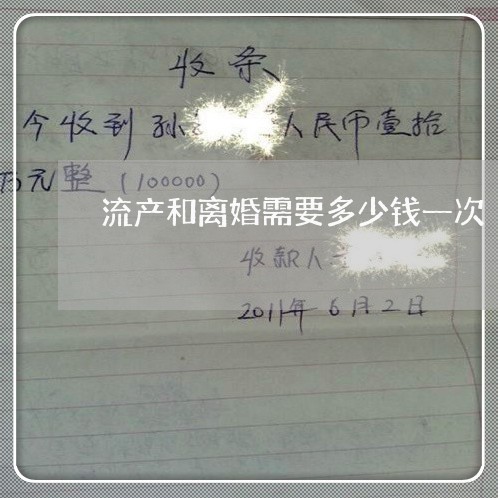 收条
今收到孙 人民币壹拾
万元整（100000）
流产和离婚需要多少钱一次
收款人
2011年6月2日